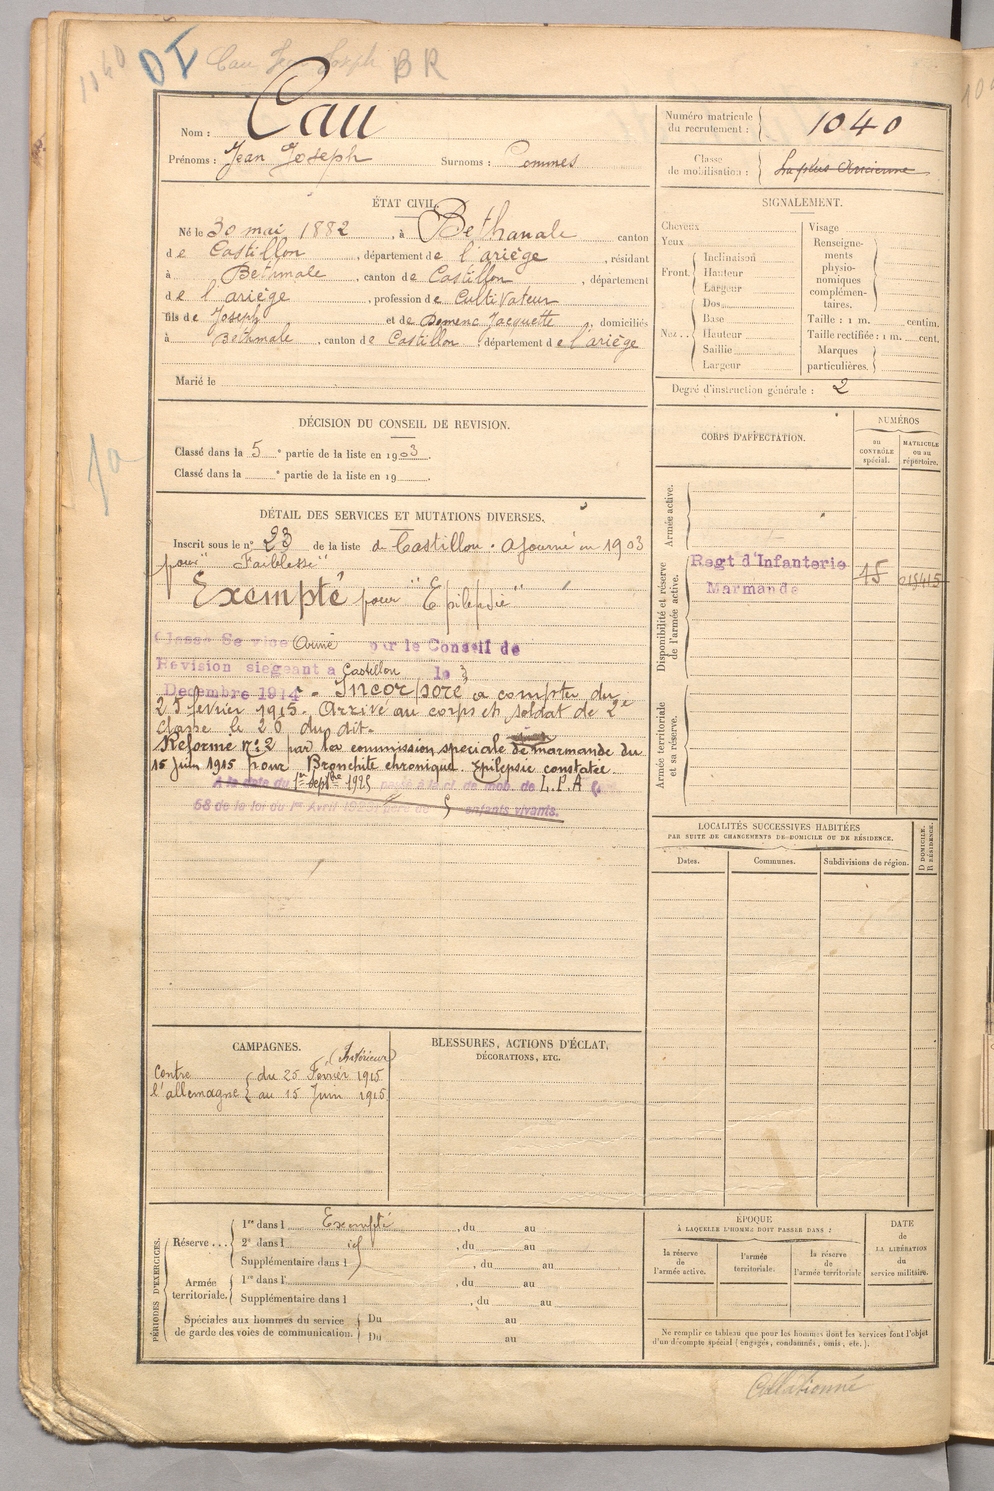 1040 Cau Jean Joseph BR
Nom : Cau
Prénoms : Jean Joseph Surnoms : Commes
Numéro matricule du recrutement : 1040
Classe de mobilisation : La plus Ancienne
ÉTAT CIVIL.
Né le 30 mai 1882, à Bethmale canton
de Castillon, département de l'ariège, résidant
à Bethmale, canton de Castillon, département
de l'ariège, profession de Cultivateur
fils de Joseph et de Domenc Jacquette, domiciliés
à Bethmale, canton de Castillon, département de l'ariège
Marié le
SIGNALEMENT.
Cheveux
Yeux
Front. Inclinaison
Hauteur
Largeur
Nez. Dos
Base
Hauteur
Saillie
Largeur
Visage
Renseigne-
ments
physio-
nomiques
complémen-
taires.
Taille : 1 m. centim.
Taille rectifiée : 1 m. cent.
Marques
particulières.
Degré d'instruction générale : 2
DÉCISION DU CONSEIL DE REVISION.
Classé dans la 5e partie de la liste en 1903.
Classé dans la e partie de la liste en 19 .
DÉTAIL DES SERVICES ET MUTATIONS DIVERSES.
Inscrit sous le n° 23 de la liste de Castillon. Ajourné en 1903
pour "Faiblesse"
Exempté pour "Epilepsie"
Classé Service Armé par le Conseil de
Révision siégeant à Castillon le 3
Décembre 1914 - Incorporé à compter du
25 février 1915. Arrivé au corps et soldat de 2e
classe le 26 du dit.
Réformé n° 2 par la commission spéciale de marmande du
15 Juin 1915 pour Bronchite chronique. Epilepsie constatée.
A la date du 1er Septbre 1925 passé à la cl. de mob. de L.P.A
58 de la loi du 1er Avril 1923 père de 5 enfants vivants.
CORPS D'AFFECTATION.
NUMÉROS
au CONTRÔLE spécial.
MATRICULE ou au répertoire.
Armée active.
Disponibilité et réserve de l'armée active.
Regt d'Infanterie
Marmande
15
Armée territoriale et sa réserve.
LOCALITÉS SUCCESSIVES HABITÉES
PAR SUITE DE CHANGEMENTS DE DOMICILE OU DE RÉSIDENCE.
Dates. Communes. Subdivisions de région. D DOMICILE. R RÉSIDENCE.
CAMPAGNES.
(Intérieur)
Contre l'allemagne { du 25 Février 1915
au 15 Juin 1915
BLESSURES, ACTIONS D'ÉCLAT,
DÉCORATIONS, ETC.
PÉRIODES D'EXERCICES.
Réserve... 1re dans l Exempté, du au
2e dans l id, du au
Supplémentaire dans l , du au
Armée territoriale. 1re dans l' , du au
Supplémentaire dans l , du au
Spéciales aux hommes du service
de garde des voies de communication. Du au
Du au
ÉPOQUE
À LAQUELLE L'HOMME DOIT PASSER DANS :
la réserve de l'armée active.
l'armée territoriale.
la réserve de l'armée territoriale
DATE
de
LA LIBÉRATION
du
service militaire.
Ne remplir ce tableau que pour les hommes dont les services font l'objet
d'un décompte spécial (engagés, condamnés, omis, etc.).
Collationné